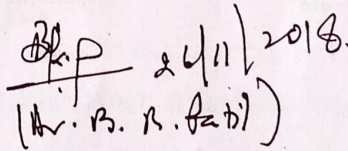 24/11/2018.
(Dr. B. R. Patil)